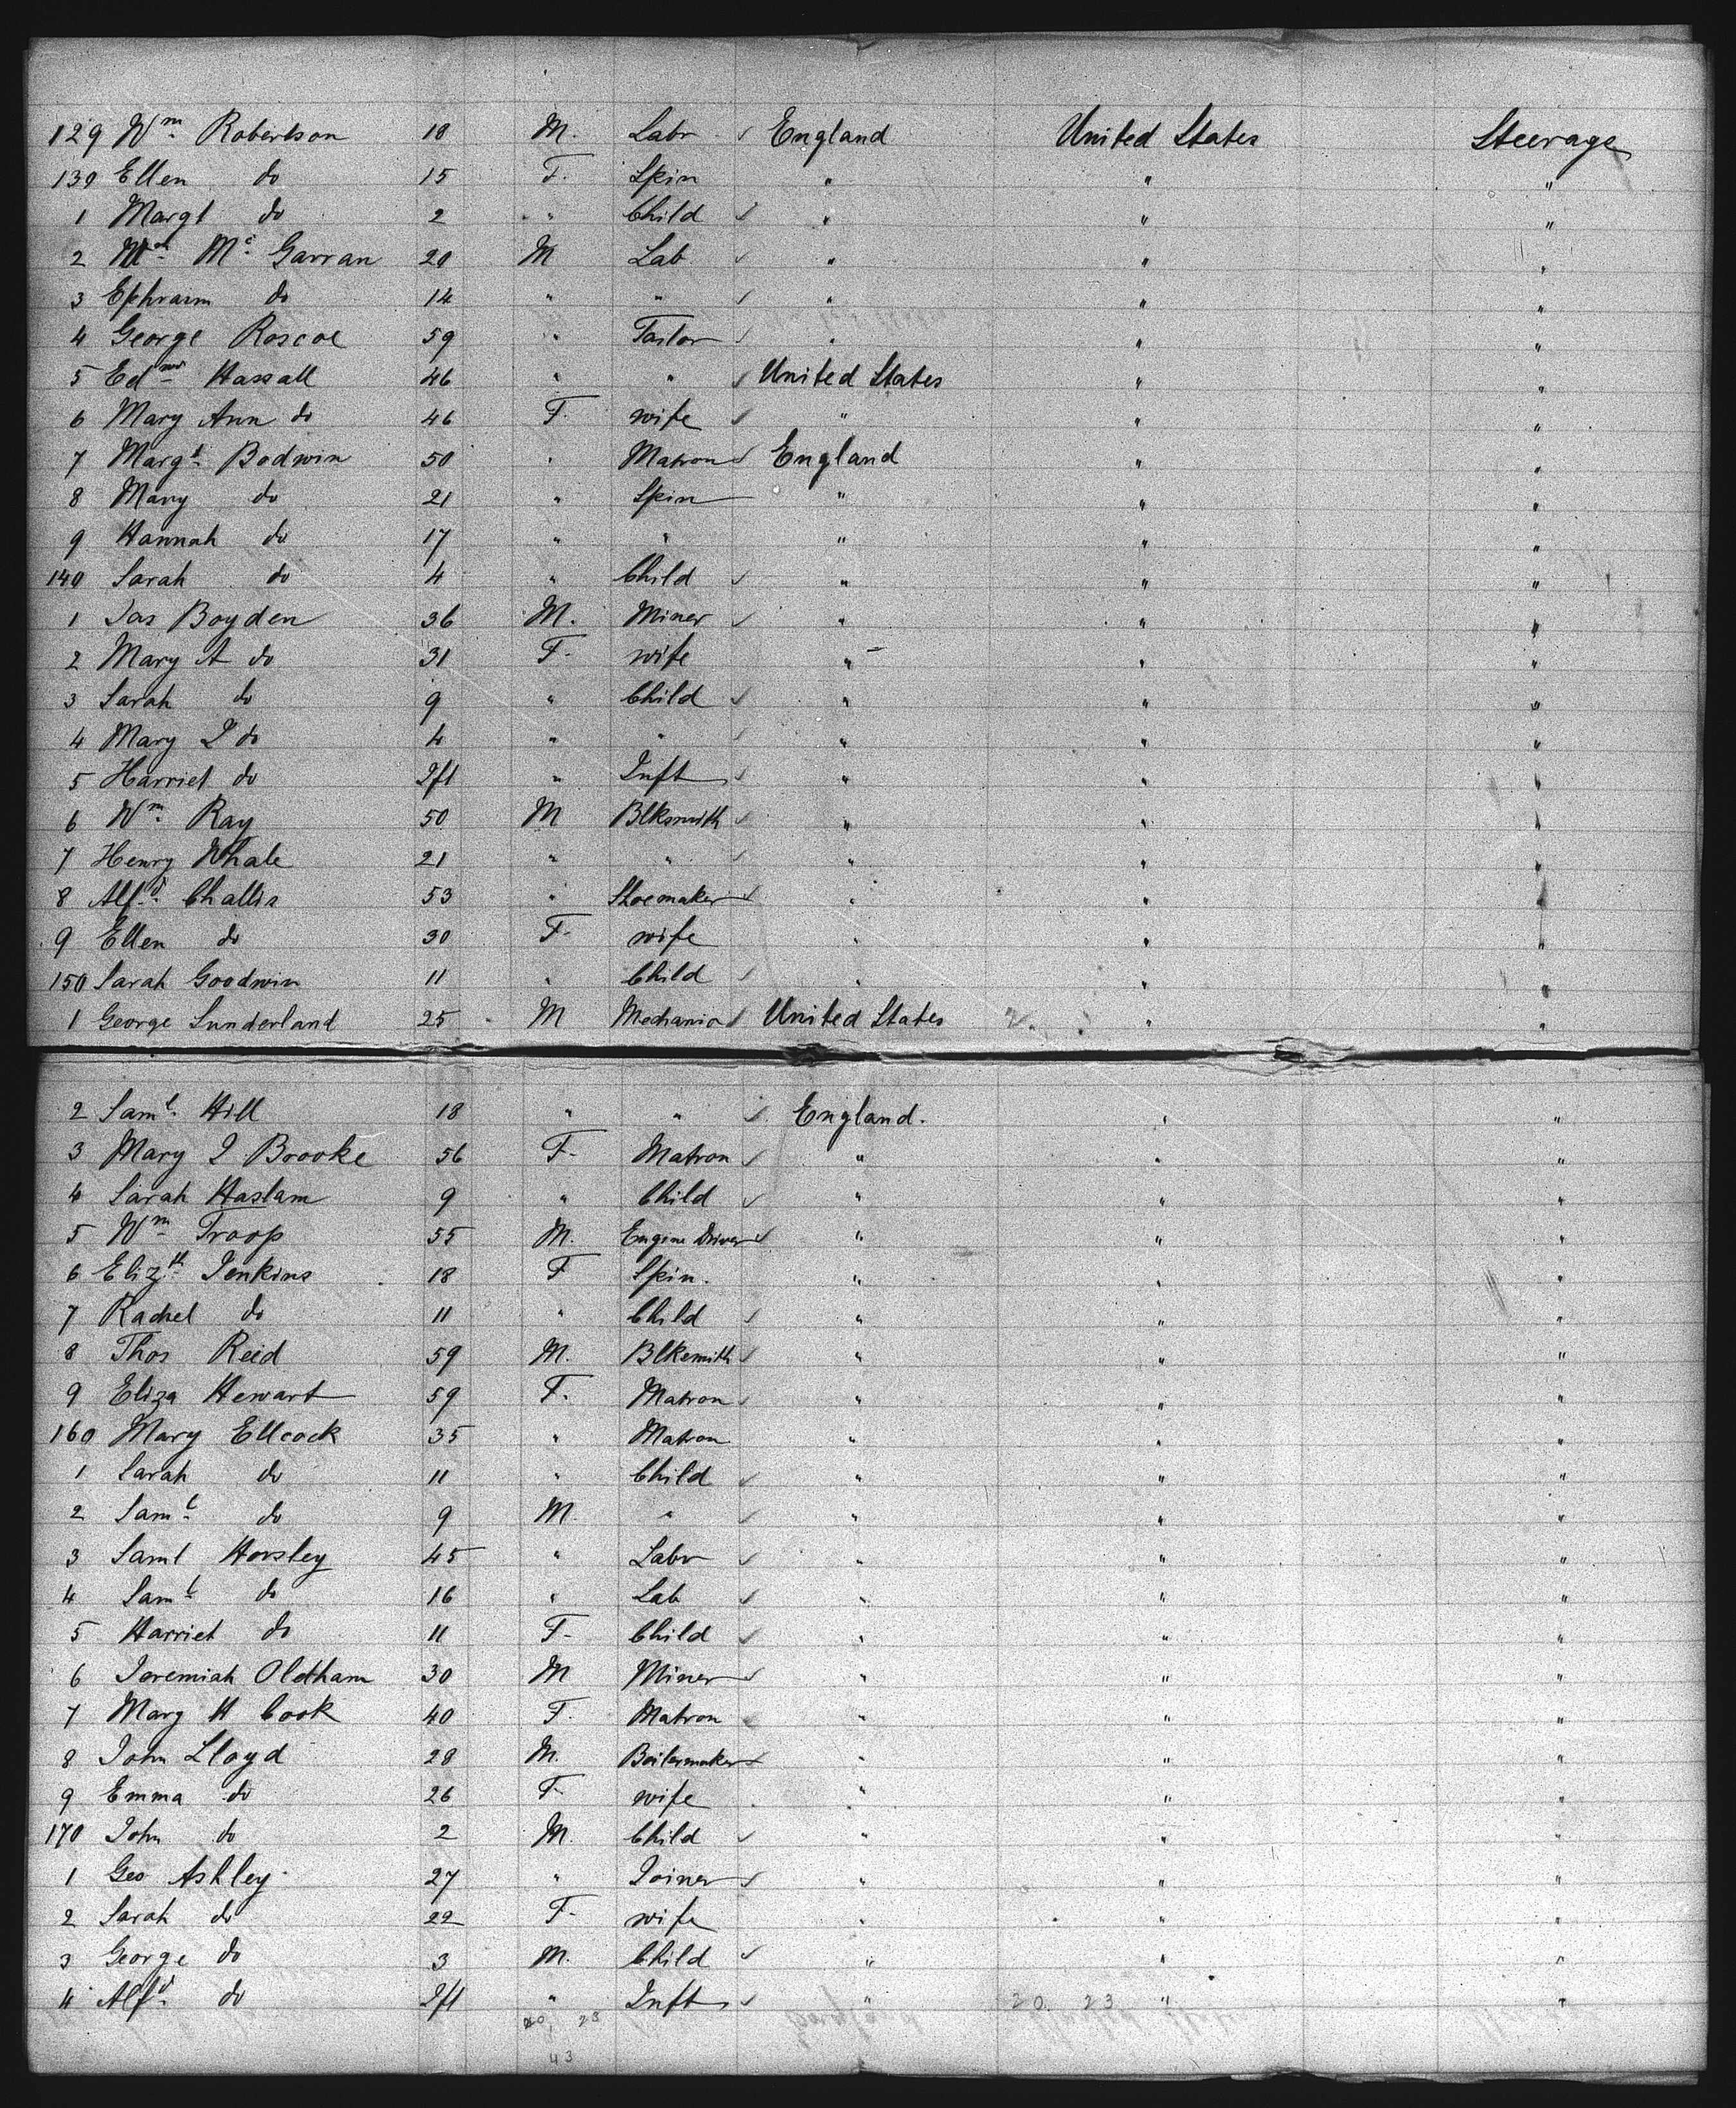 129 Wm Robertson 18 M. Labr ✓ England United States Steerage
130 Ellen do 15 F. Spin " " "
1 Margt do 2 " Child ✓ " " "
2 Wm Mc Garran 20 M Lab ✓ " " "
3 Ephraim do 14 " " ✓ " " "
4 George Roscoe 59 " Tailor ✓ " " "
5 Edwd Hassall 46 " " ✓ United States " "
6 Mary Ann do 46 F. wife ✓ " " "
7 Margt Bodwin 50 " Matron ✓ England " "
8 Mary do 21 " Spin " " "
9 Hannah do 17 " " " " "
140 Sarah do 4 " Child ✓ " " "
1 Jas Boyden 36 M. Miner ✓ " " "
2 Mary A do 31 F. wife " " "
3 Sarah do 9 " Child ✓ " " "
4 Mary J do 4 " " ✓ " " "
5 Harriet do Ift " Inft ✓ " " "
6 Wm Ray 50 M Blksmith ✓ " " "
7 Henry Whale 21 " " ✓ " " "
8 Alfd Challis 53 " Shoemaker ✓ " " "
9 Ellen do 30 F. wife " " "
150 Sarah Goodwin 11 " Child ✓ " " "
1 George Sunderland 25 M Mechanic ✓ United States 2. " "
2 Saml Hill 18 " " ✓ England. " "
3 Mary J Brooke 56 F. Matron ✓ " " "
4 Sarah Haslam 9 " Child ✓ " " "
5 Wm Troop 55 M. Engine Driver ✓ " " "
6 Elizth Jenkins 18 F Spin. " " "
7 Rachel do 11 " Child ✓ " " "
8 Thos Reid 59 M. Blksmith ✓ " " "
9 Eliza Hewart 59 F. Matron ✓ " " "
160 Mary Ellcock 35 " Matron " " "
1 Sarah do 11 " Child ✓ " " "
2 Saml do 9 M. " ✓ " " "
3 Saml Horsley 45 " Labr ✓ " " "
4 Saml do 16 " Lab ✓ " " "
5 Harriet do 11 F. Child ✓ " " "
6 Jeremiah Oldham 30 M Miner ✓ " " "
7 Mary H Cook 40 F. Matron ✓ " " "
8 John Lloyd 28 M. Boilermaker ✓ " " "
9 Emma do 26 F. wife " " "
170 John do 2 M. Child ✓ " " "
1 Geo Ashley 27 " Joiner ✓ " " "
2 Sarah do 22 F. wife " " "
3 George do 3 M. Child ✓ " " "
4 Alfd do Ift " Inft ✓ " 20. 23 " "
20, 23
43